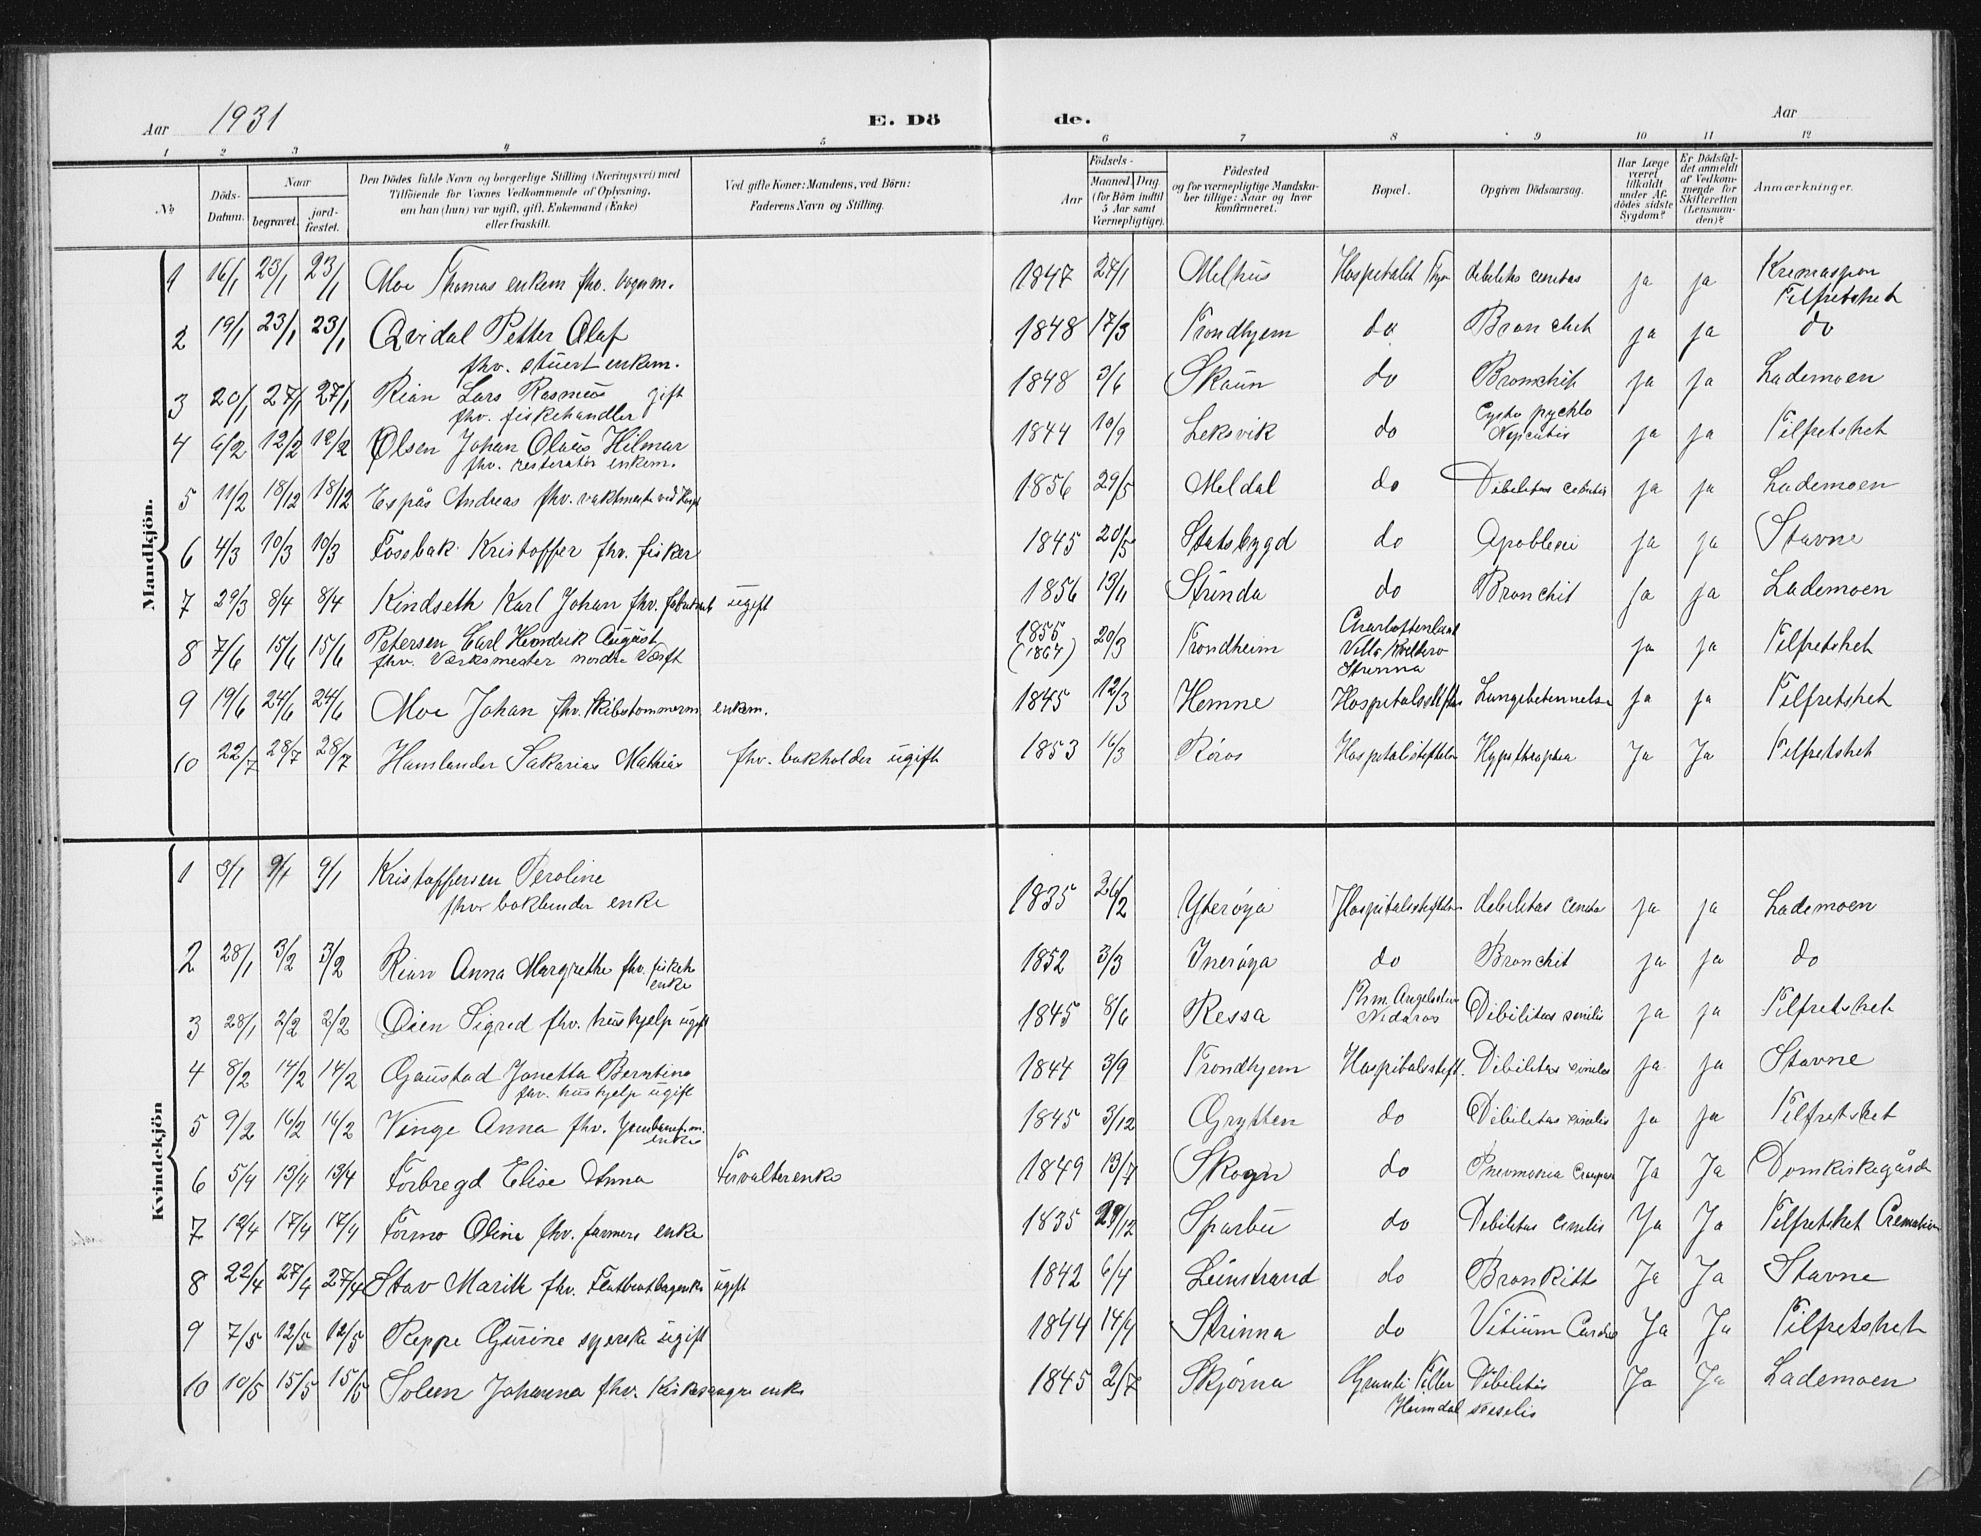 Aar 1931 E. Dö de. Aar
1 2 3 4 5 6 7 8 9 10 11 12
No
Döds-Datum.
Naar
begravet.
jord-fæstet.
Den Dödes fulde Navn og borgerlige Stilling (Næringsvei) med
Tilföiende for Voxnes Vedkommende af Oplysning,
om han (hun) var ugift, gift, Enkemand (Enke)
eller fraskilt.
Ved gifte Koner: Mandens, ved Börn:
Faderens Navn og Stilling.
Födsels-
Aar
Maaned Dag.
(for Börn indtil
5 Aar samt
Værnepligtige).
Födested
og for værnepligtige Mandska-
ber tillige: Naar og hvor
konfirmeret.
Bopæl.
Opgiven Dödsaarsag.
Har Læge
været
tilkaldt
under Af-
dödes sidste
Sygdom?
Er Dödsfal-
det anmeldt
af Vedkom-
mende for
Skifteretten
(Lensman-
den)?
Anmærkninger.
Mandkjön.
1 16/1 23/1 23/1 Moe Thomas enkem fhv. vognm. 1847 27/1 Melhus Hospitalet debilitas ja ja
Tilfretshet
2 19/1 23/1 23/1 Qvidal Petter Olaf 1848 17/3 Trondhjem do Bronchit ja ja do
fhv. stuert enkem.
3 20/1 27/1 27/1 Rian Lars Rasmus gift 1848 3/6 Skaun do Bronchit ja ja Lademoen
fhv. fiskehandler
4 6/2 12/2 12/2 Olsen Johan Olaus Hilmar 1844 10/9 Leksvik do ja ja Tilfretshet
fhv. restoratör enkem.
5 11/2 18/12 18/12 Espås Andreas fhv. vaktmester ved Hosp 1856 29/5 Meldal do Dibilitas ja ja Lademoen
6 4/3 10/3 10/3 Fossbak Kristoffer fhv. fisker 1845 20/5 Statsbygd do Apoblexi ja ja Stavne
7 29/3 8/4 8/4 Kindseth Karl Johan fhv. ugift 1856 Strinda do Bronchit ja ja Lademoen
8 7/6 15/6 15/6 Petersen Carl Hendrik August 1855 (1864) 20/3 Trondheim Charlottenlund ja ja Tilfretshet
fhv. Værksmester nordre Værft Strinna
9 19/6 24/6 24/6 Moe Johan fhv. Skibstømmerm enkem. 1845 12/3 Hemne Hospitalsstiftelse Lungebetennelse ja ja Tilfretshet
10 22/7 28/7 28/7 Hamlander Sakarias Mathias fhv. bokholder ugift 1853 16/3 Røros Hospitalsstiftelse Ja Ja Tilfretshet
Kvindekjön
1 3/1 9/1 9/1 Kristoffersen Peroline 1835 26/2 Yterøya Hospitalsstiftelse debilitas ja ja Lademoen
fhv bokbinder enke
2 28/1 3/2 3/2 Rian Anna Margrethe fhv. fiskeh 1852 3/3 Inerøya do Bronchit ja ja do
enke
3 28/1 2/2 2/2 Øien Sigrid fhv. hushjelp ugift 1845 8/6 Ressa Nidaros Dibilitas senilis ja ja Tilfretshet
4 8/2 14/2 14/2 Gaustad Janetta Berntine 1844 3/9 Trondhjem Hospitalsstift. Dibilitas sinilis ja ja Stavne
fhv. hushjelp ugift
5 9/2 16/2 16/2 Vinge Anna fhv. 1845 3/12 Grytten do Dibilitas sinilis ja ja Tilfretshet
enke
6 5/4 13/4 13/4 Forbregd Elise Anna Forvalterenke 1849 13/7 Skogn do Pneumonia Ja Ja Domkirkegården
7 12/4 17/4 17/4 Formo Olina fhv. farmers enke 1835 29/12 Sparbu do Dibilitas cinilis Ja Ja Tilfretshet Cremation
8 22/4 27/4 27/4 Stav Marit fhv. Flatbrødbagerske ugift 1842 6/4 Leinstrand do Bronkitt Ja Ja Stavne
9 7/5 12/5 12/5 Reppe Gurine syerske ugift 1844 14/4 Strinna do Vitium Cordis Ja Ja Tilfretshet
10 10/5 15/5 15/5 Solem Johanna fhv. enke 1845 2/7 Skjørna Tiller Dibilitas Ja Ja Lademoen
Heimdal